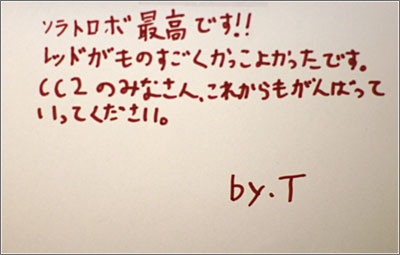 ソラトロボ最高です!!
レッドがものすごくかっこよかったです。
CC2のみなさん、これからもがんばって
いってください。
by.T